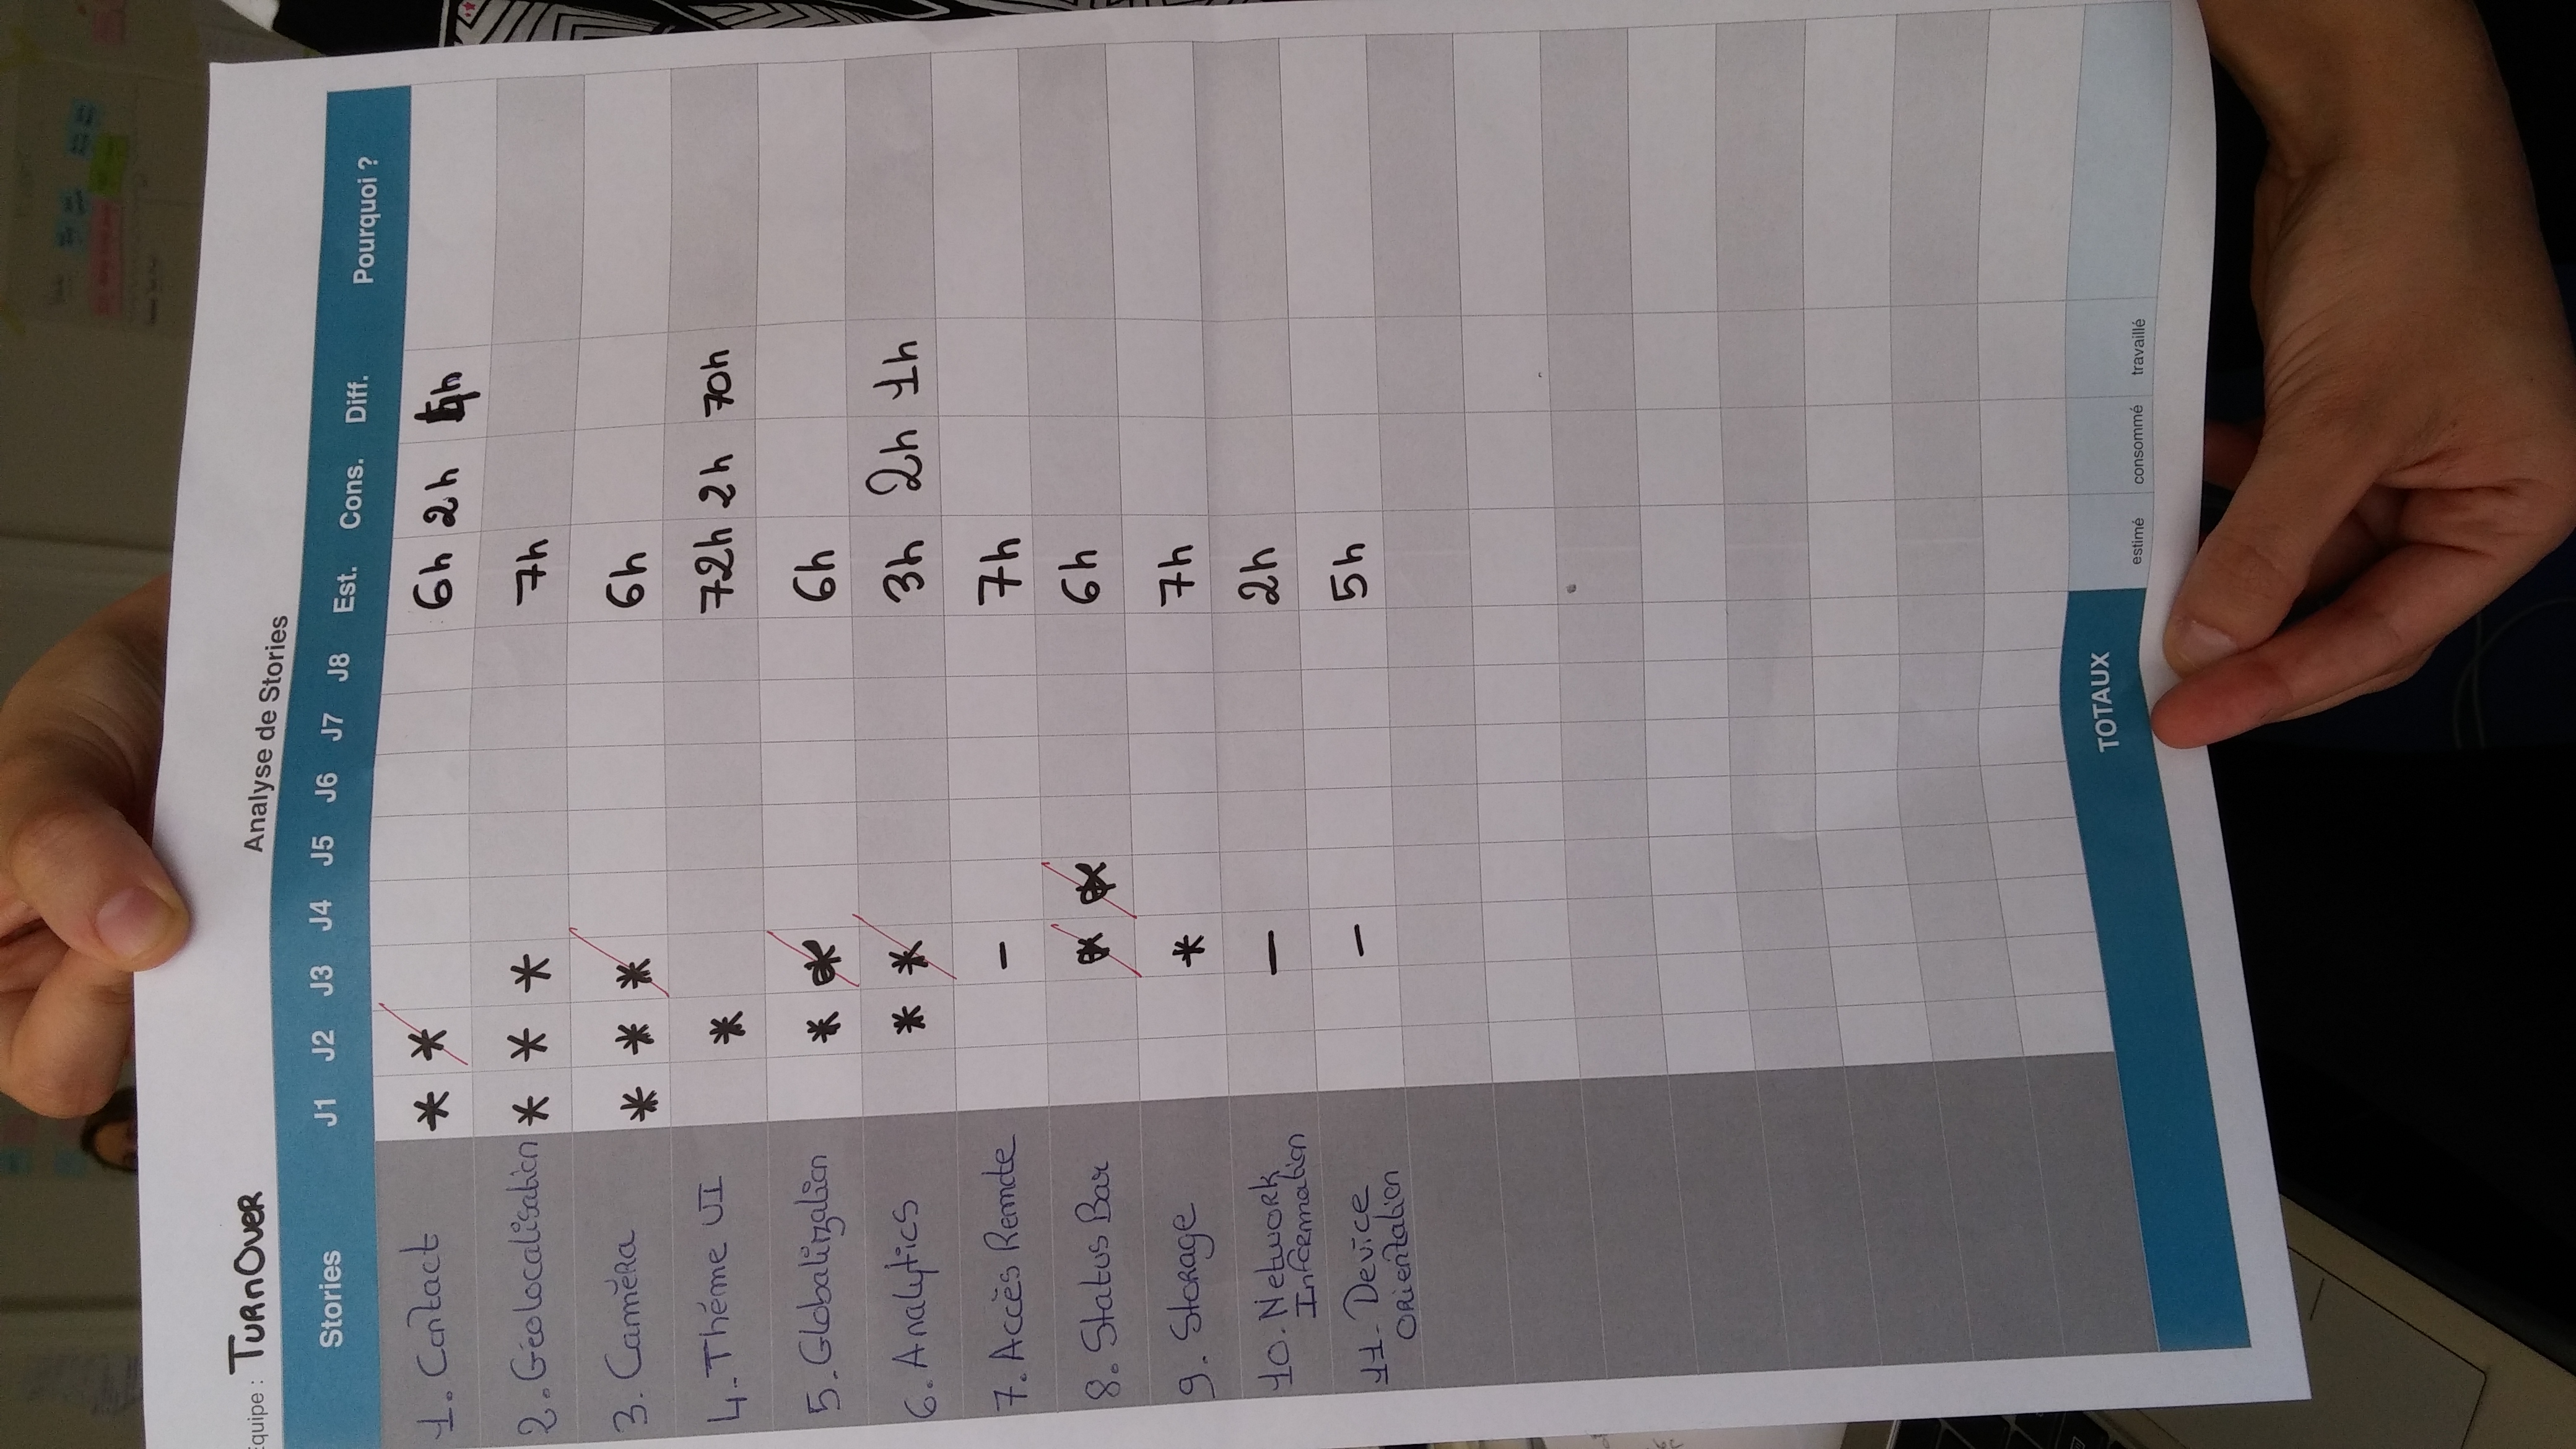 Equipe : TURnOveR
Analyse de Stories
Stories J1 J2 J3 J4 J5 J6 J7 J8 Est. Cons. Diff. Pourquoi ?
1. Contact * * 6h 2h 4h
2. Géolocalisation * * * 7h
3. Caméra * * * 6h
4. Thème UI * 72h 2h 70h
5. Globalization * * 6h
6. Analytics * * 3h 2h 1h
7. Accès Remote – 7h
8. Status Bar * * 6h
9. Storage * 7h
10. Network – 2h
Information
11. Device – 5h
Orientation
TOTAUX
estimé consommé travaillé